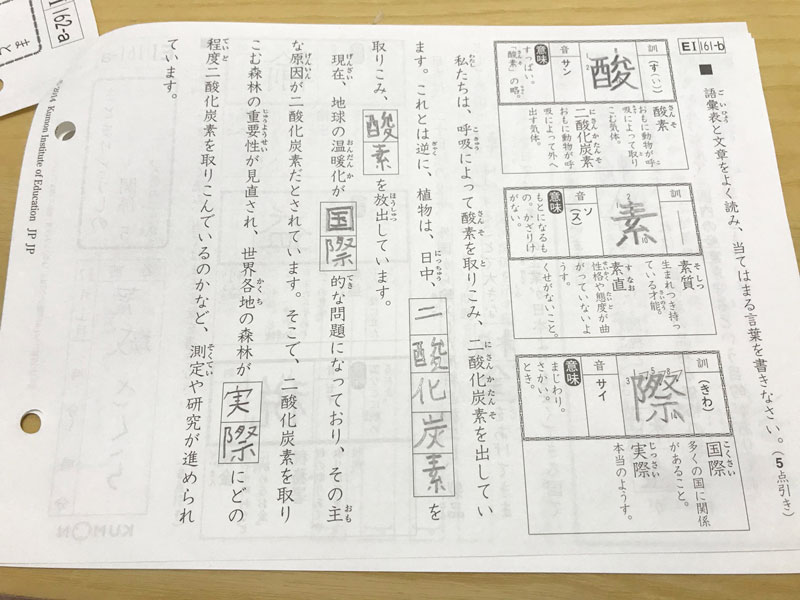 EI 161-b
■ 語彙表と文章をよく読み、当てはまる言葉を書きなさい。(5点引き)
訓 (す(い))
酸
音 サン
意味
すっぱい。
「酸素」の略。
酸素
おもに動物が呼
吸によって取り
こむ気体。
二酸化炭素
おもに動物が呼
吸によって外へ
出す気体。
訓
素
音 ソ
(ス)
意味
もとになるも
の。かざりけ
がない。
素質
生まれつき持っ
ている才能。
素直
性格や態度が曲
がっていないよ
うす。
くせがないこと。
訓 (きわ)
際
音 サイ
意味
まじわり。
さかい。
とき。
国際
多くの国に関係
があること。
実際
本当のようす。
私たちは、呼吸によって酸素を取りこみ、二酸化炭素を出してい
ます。これとは逆に、植物は、日中、二酸化炭素を
取りこみ、酸素を放出しています。
現在、地球の温暖化が国際的な問題になっており、その主
な原因が二酸化炭素だとされています。そこで、二酸化炭素を取り
こむ森林の重要性が見直され、世界各地の森林が実際にどの
程度二酸化炭素を取りこんでいるのかなど、測定や研究が進められ
ています。
Kumon Institute of Education JP JP
162-a
KUMON